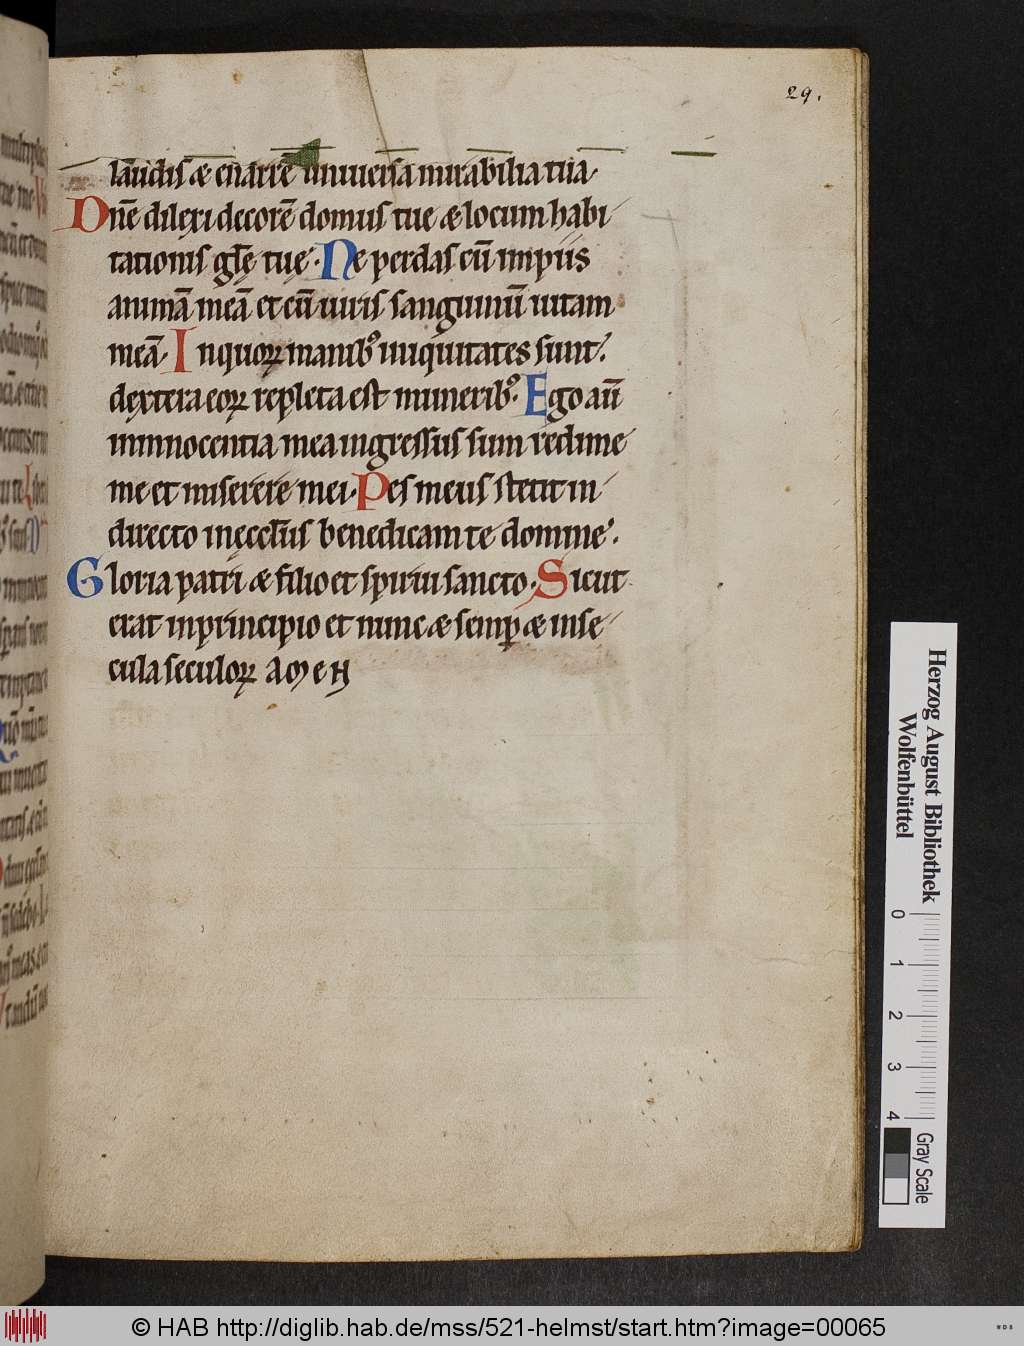 29.
laudis & enarrē uniuersa mirabilia tua.
Dn̄e dilexi decorē domus tue & locum habi
tationis gl̄ę tuę. Ne perdas cū impiis
animā meā et cū uiris sanguinū uitam
meā. In quoꝝ manibꝰ iniquitates sunt.
dextera eoꝝ repleta est muneribꝰ. Ego aū
in innocentia mea ingressus sum redime
me et miserere mei. Pes meus stetit in
directo in ęccl̄iis benedicam te domine.
Gloria patri & filio et spiritui sancto. Sicut
erat in principio et nunc & semꝑ & in se
cula seculoꝝ amen
Herzog August Bibliothek
Wolfenbüttel
0 1 2 3 4
Gray Scale
© HAB http://diglib.hab.de/mss/521-helmst/start.htm?image=00065